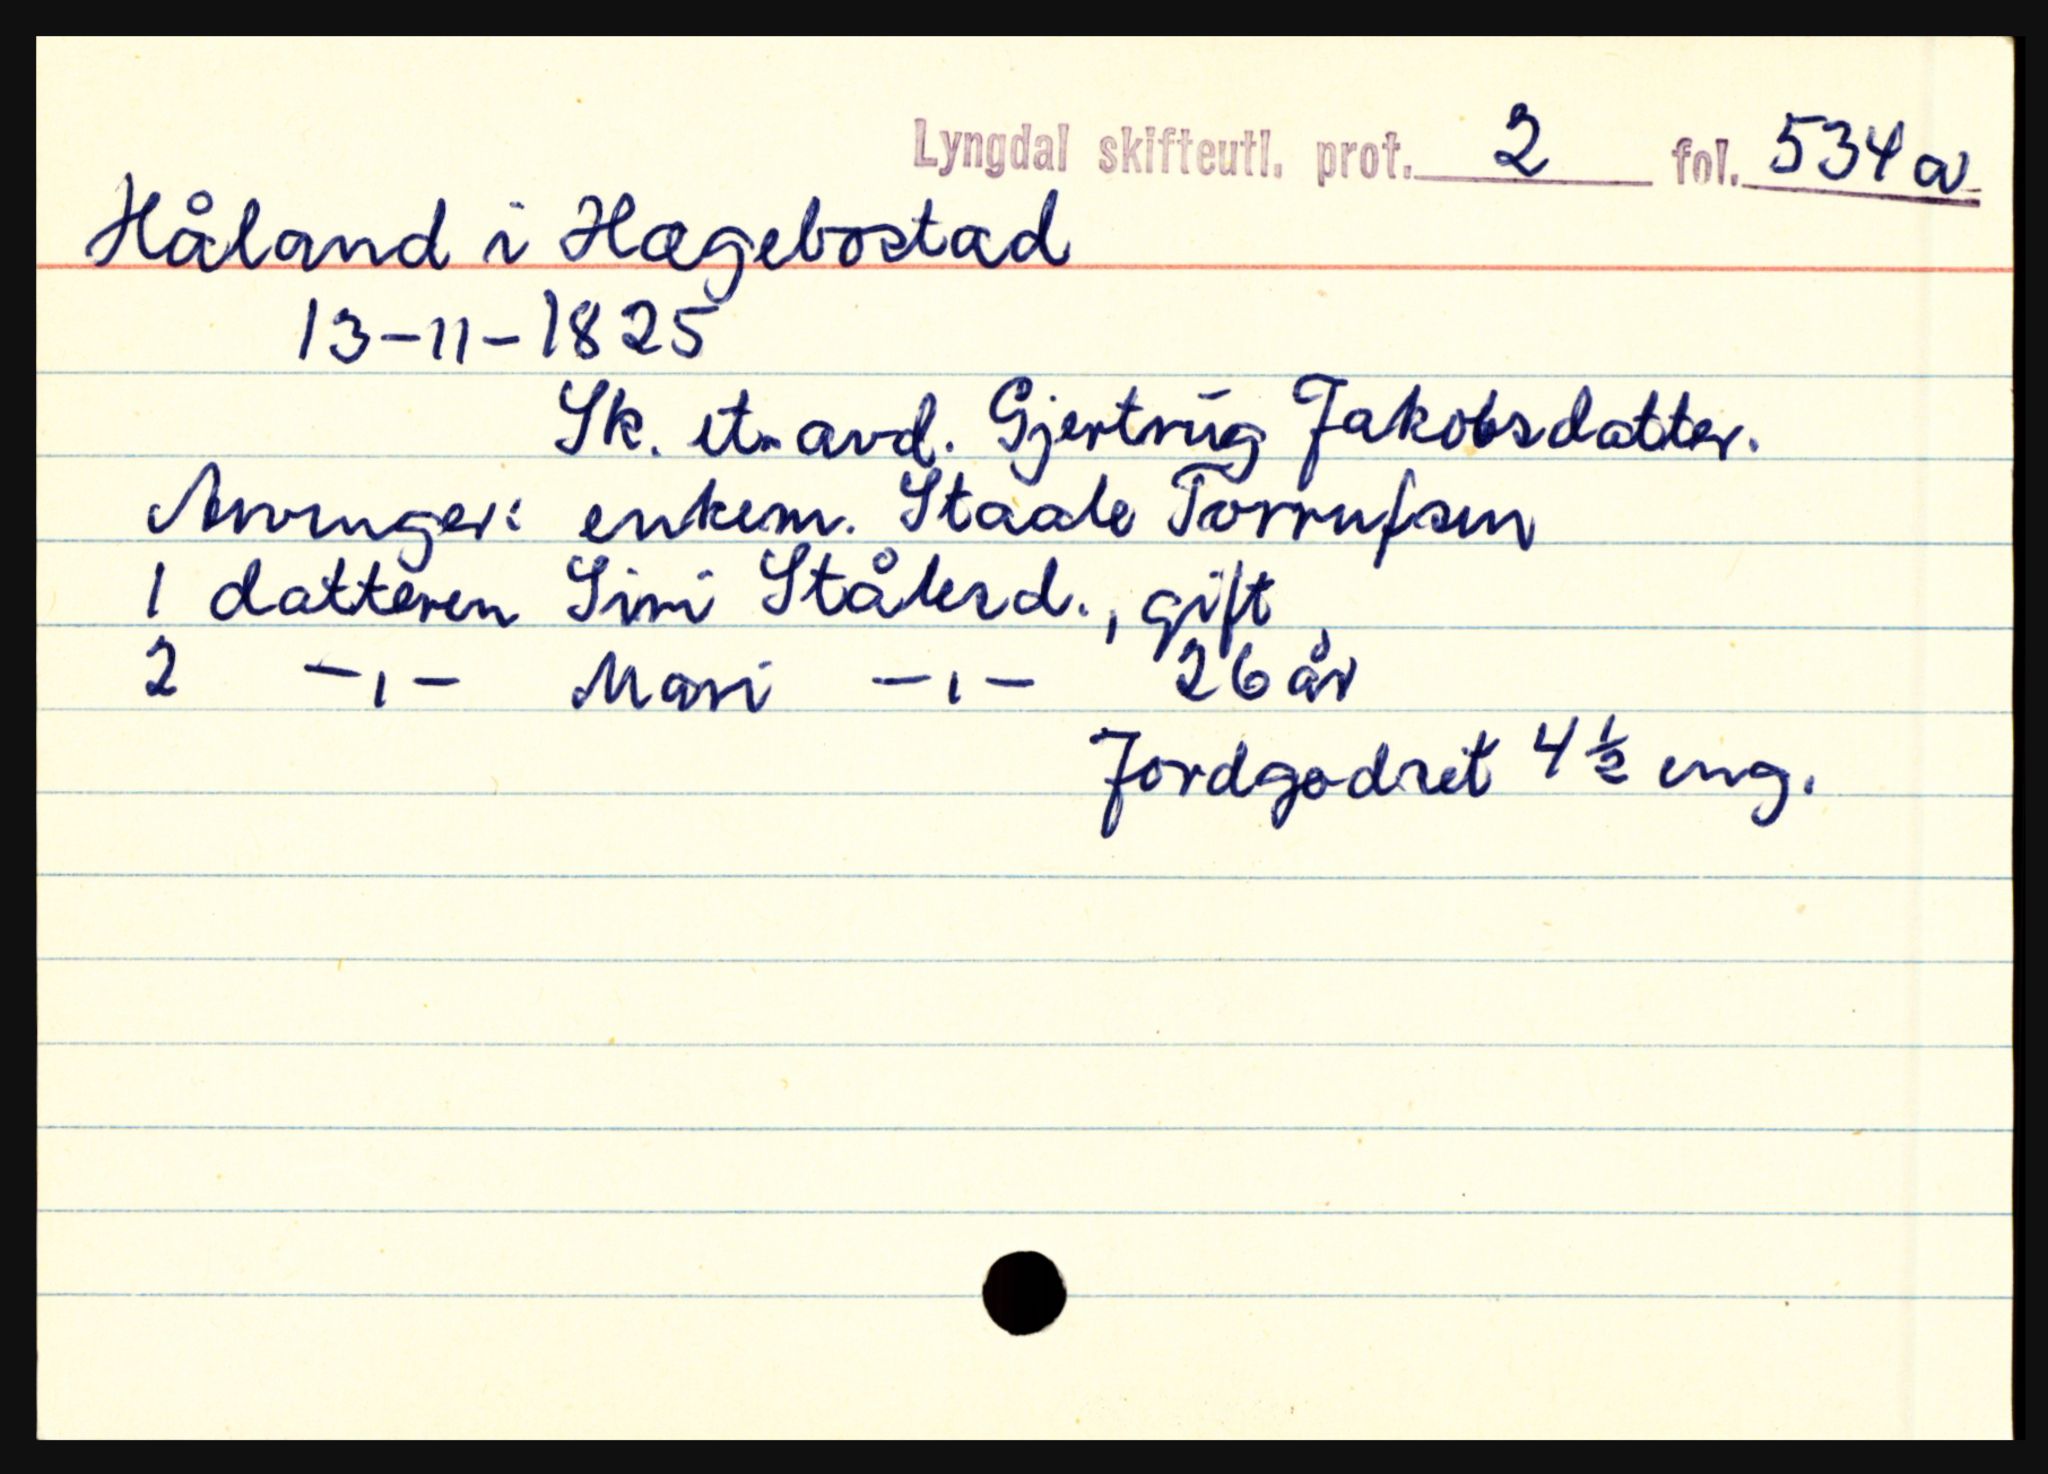 Lyngdal skifteutl. prot. 2 fol. 534a
Håland i Hægebostad
13-11-1825
Sk. et. avd. Gjertrug Jakobsdatter.
Arvinger: enkem. Staale Torrufsen
1 datteren Siri Stålesd., gift
2 -,- Mari -,- 26 år
Jordgodset 4 ½ eng.